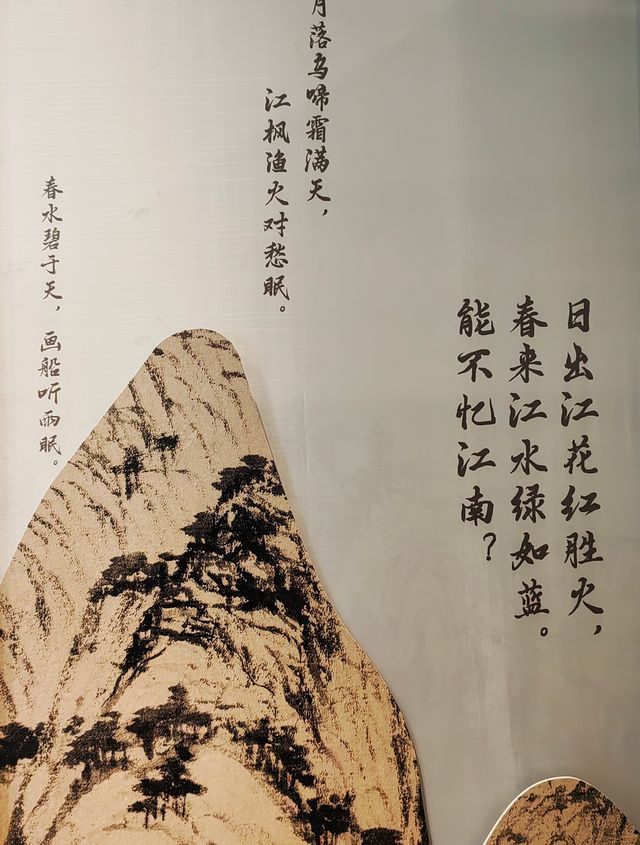 日出江花红胜火，
春来江水绿如蓝。
能不忆江南？
月落乌啼霜满天，
江枫渔火对愁眠。
春水碧于天，画船听雨眠。